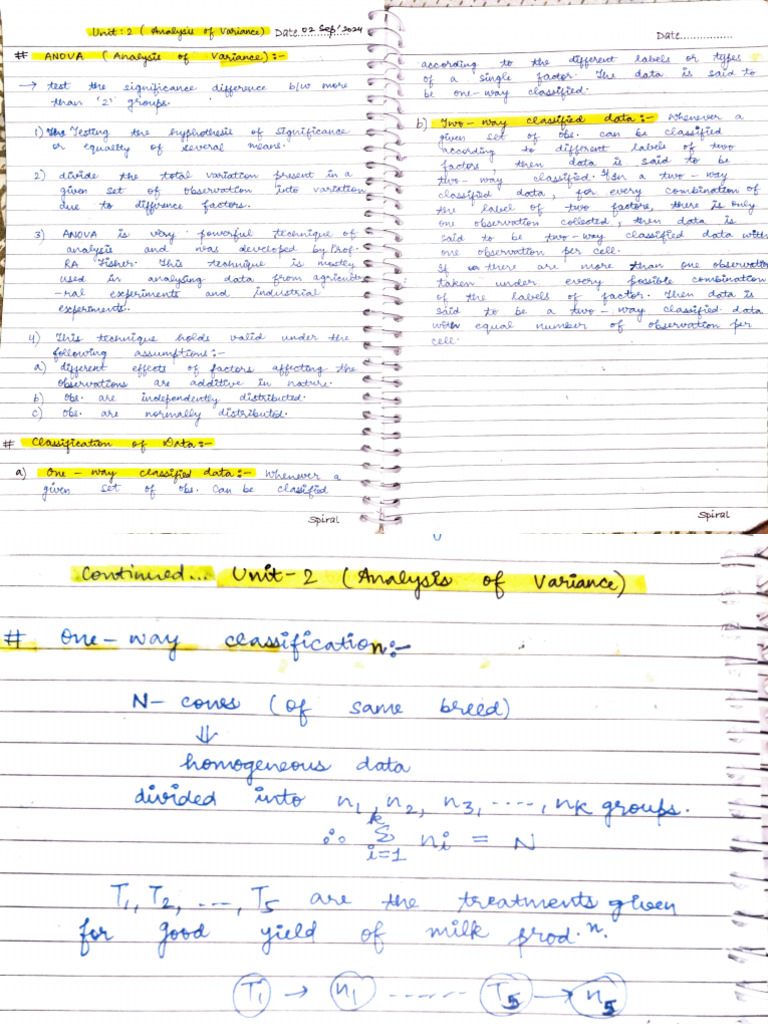 Unit:2 (Analysis of Variance) Date 02 Sep'2024
# ANOVA (Analysis of Variance):-
→ test the significance difference b/w more
than '2' groups.
1) Testing the hyphothesis of significance
or equality of several means.
2) divide the total variation present in a
given set of observation into variation
due to difference factors.
3) ANOVA is very powerful technique of
analysis and was developed by Prof.
RA Fisher. This technique is mostly
used in analysing data from agricultu
-ral experiments and industrial
experiments.
4) This technique holds valid under the
following assumptions:-
a) different effects of factors affecting the
observations are additive in nature.
b) Obs. are independently distributed.
c) Obs. are normally distributed.
# Classification of Data:-
a) One-way classified data:- Whenever a
given set of obs. can be classified
Spiral
Date................
according to the different labels or types
of a single factor. The data is said to
be one-way classified.
b) Two-way classified data:- Whenever a
given set of obs. can be classified
according to different labels of two
factors, then data is said to be
two-way classified. In a two-way
classified data, for every combination of
the label of two factors, there is only
one observation collected, then data is
said to be two-way classified data with
one observation per cell.
If there are more than one observation
taken under every possible combination
of the labels of factor. Then data is
said to be a two-way classified data
with equal number of observation per
cell.
Spiral
Continued... Unit-2 (Analysis of Variance)
# One-way classification:-
N- cows (of same breed)
⇓
homogeneous data
divided into n1, n2, n3, ----, nk groups.
∴ k Σ i=1 ni = N
T1, T2, ---, T5 are the treatments given
for good yield of milk prod.n.
T1 → n1 ------ T5 → n5